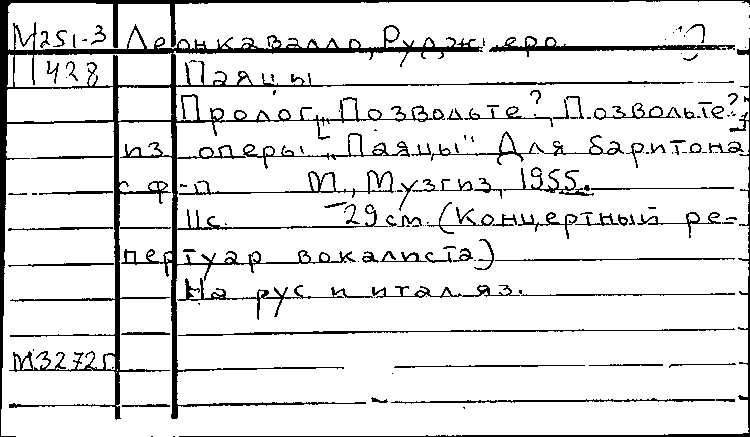 М251-3 Леонкавалло, Руджиеро.
П428 Паяцы
Пролог [„Позвольте?, Позвольте?"]
из оперы „Паяцы". Для баритона
с ф-п. М., Музгиз, 1955.
11с. 29см. (Концертный ре-
пертуар вокалиста)
На рус и итал яз.
М3272п